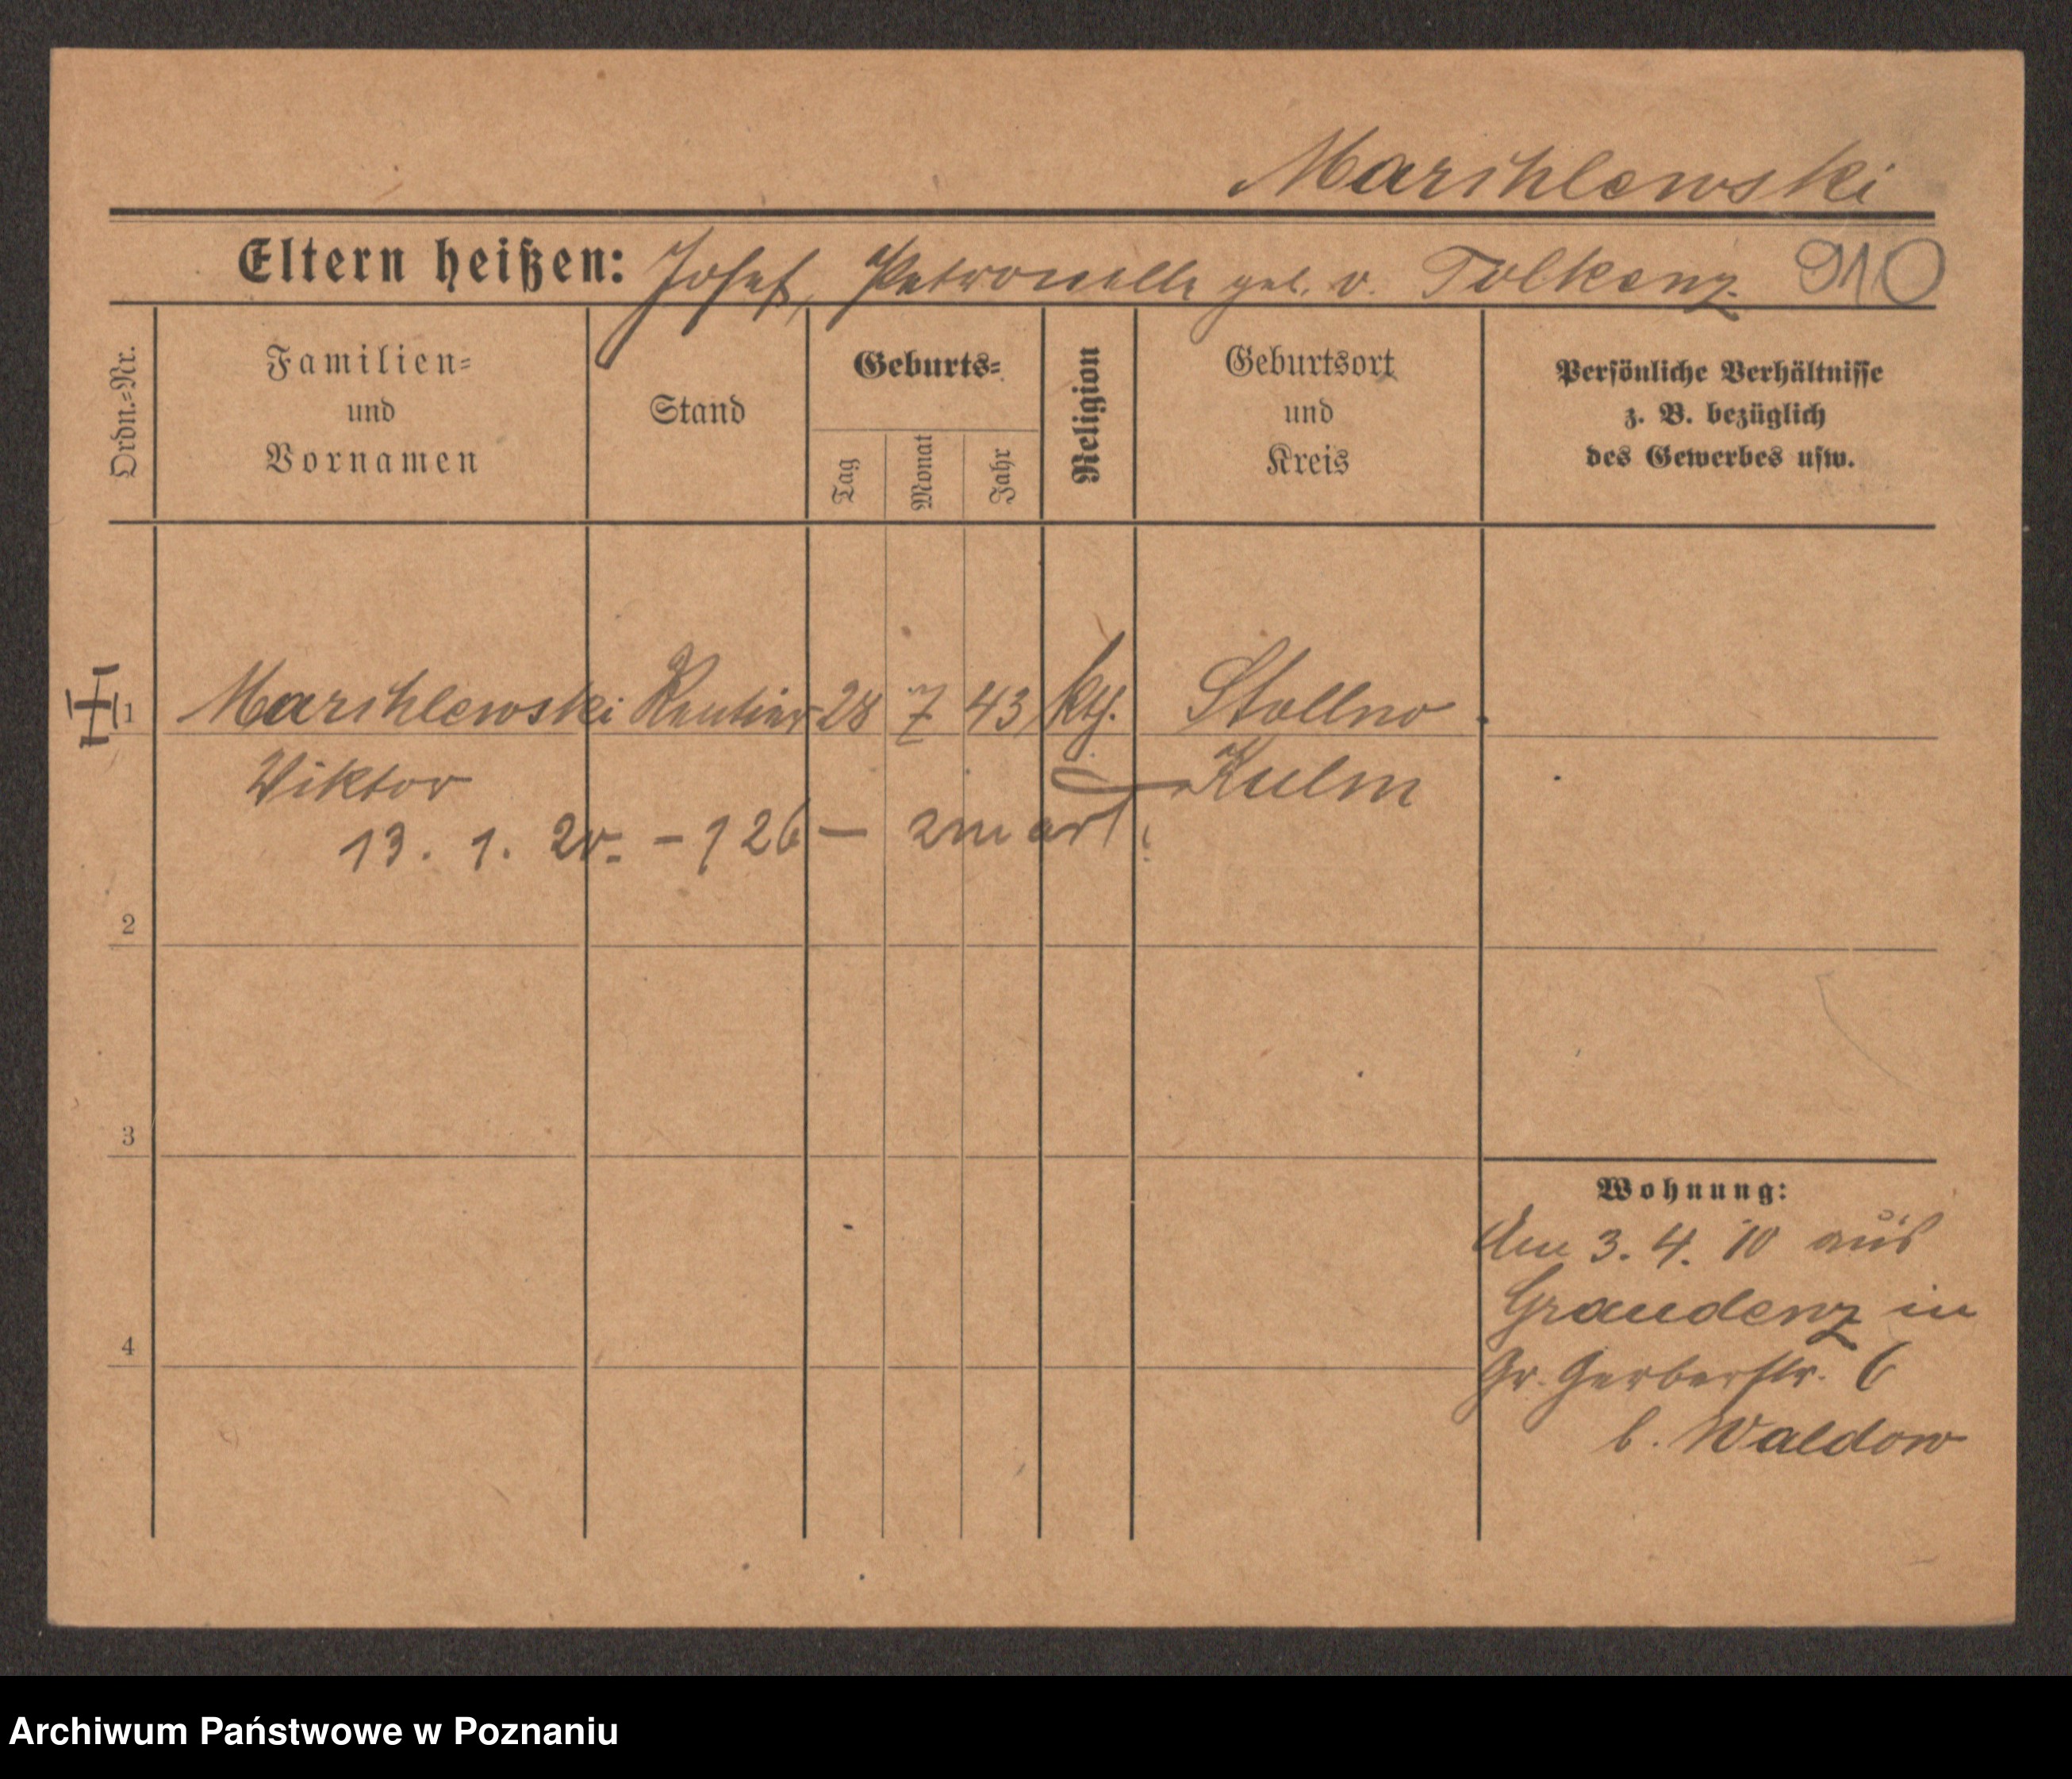 Marchlewski
Eltern heißen: Josef, Petronella geb. v. Tolkenz 910
Ordn.=Nr.
Familien=
und
Vornamen
Stand
Geburts=
Tag
Monat
Jahr
Religion
Geburtsort
und
Kreis
Persönliche Verhältnisse
z. B. bezüglich
des Gewerbes usw.
1 Marchlewski Rentier 28 7 43 kth. Stollno
Viktor Kulm
13. 1. 20. - 126 - zmarł
2
3
4
Wohnung:
Am 3. 4. 10 aus
Graudenz in
Gr. Gerberstr. 6
b. Waldow
Archiwum Państwowe w Poznaniu